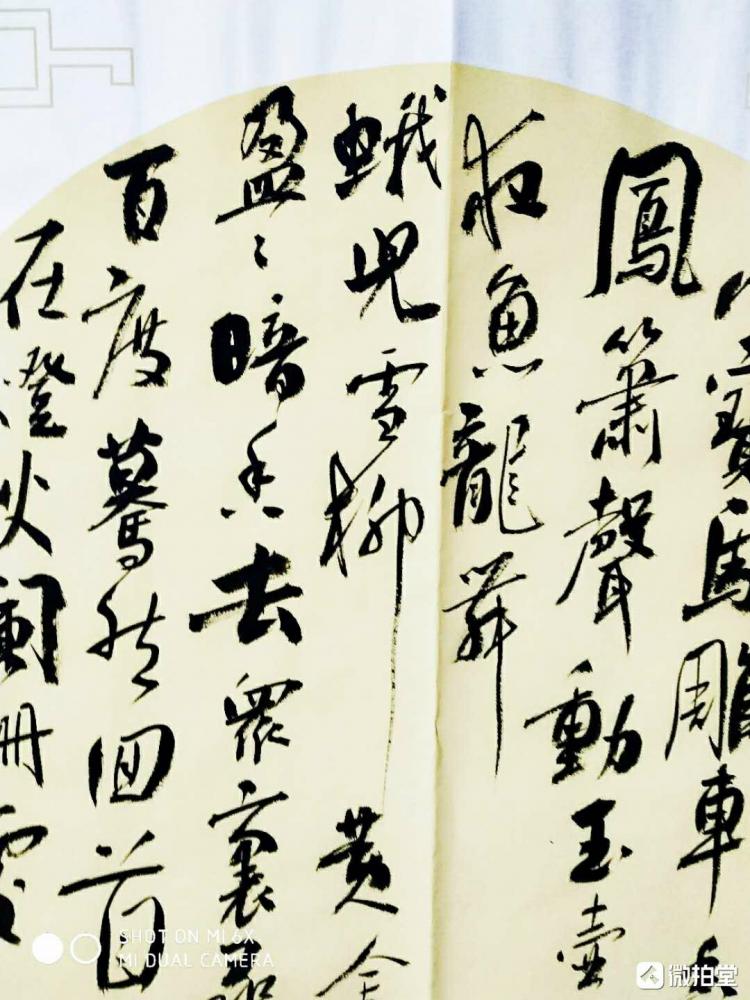 寶馬雕車
鳳簫聲動玉壺
夜魚龍舞
蛾兒雪柳黃金
盈〻暗香去眾裏
百度驀然回首
在燈火闌珊處
SHOT ON MI 6X
MI DUAL CAMERA
微拍堂